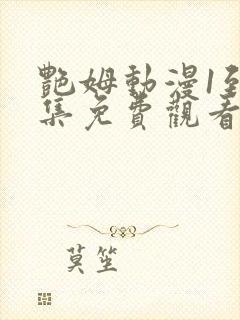 艷姆動漫1至
集免費觀看
莫笙